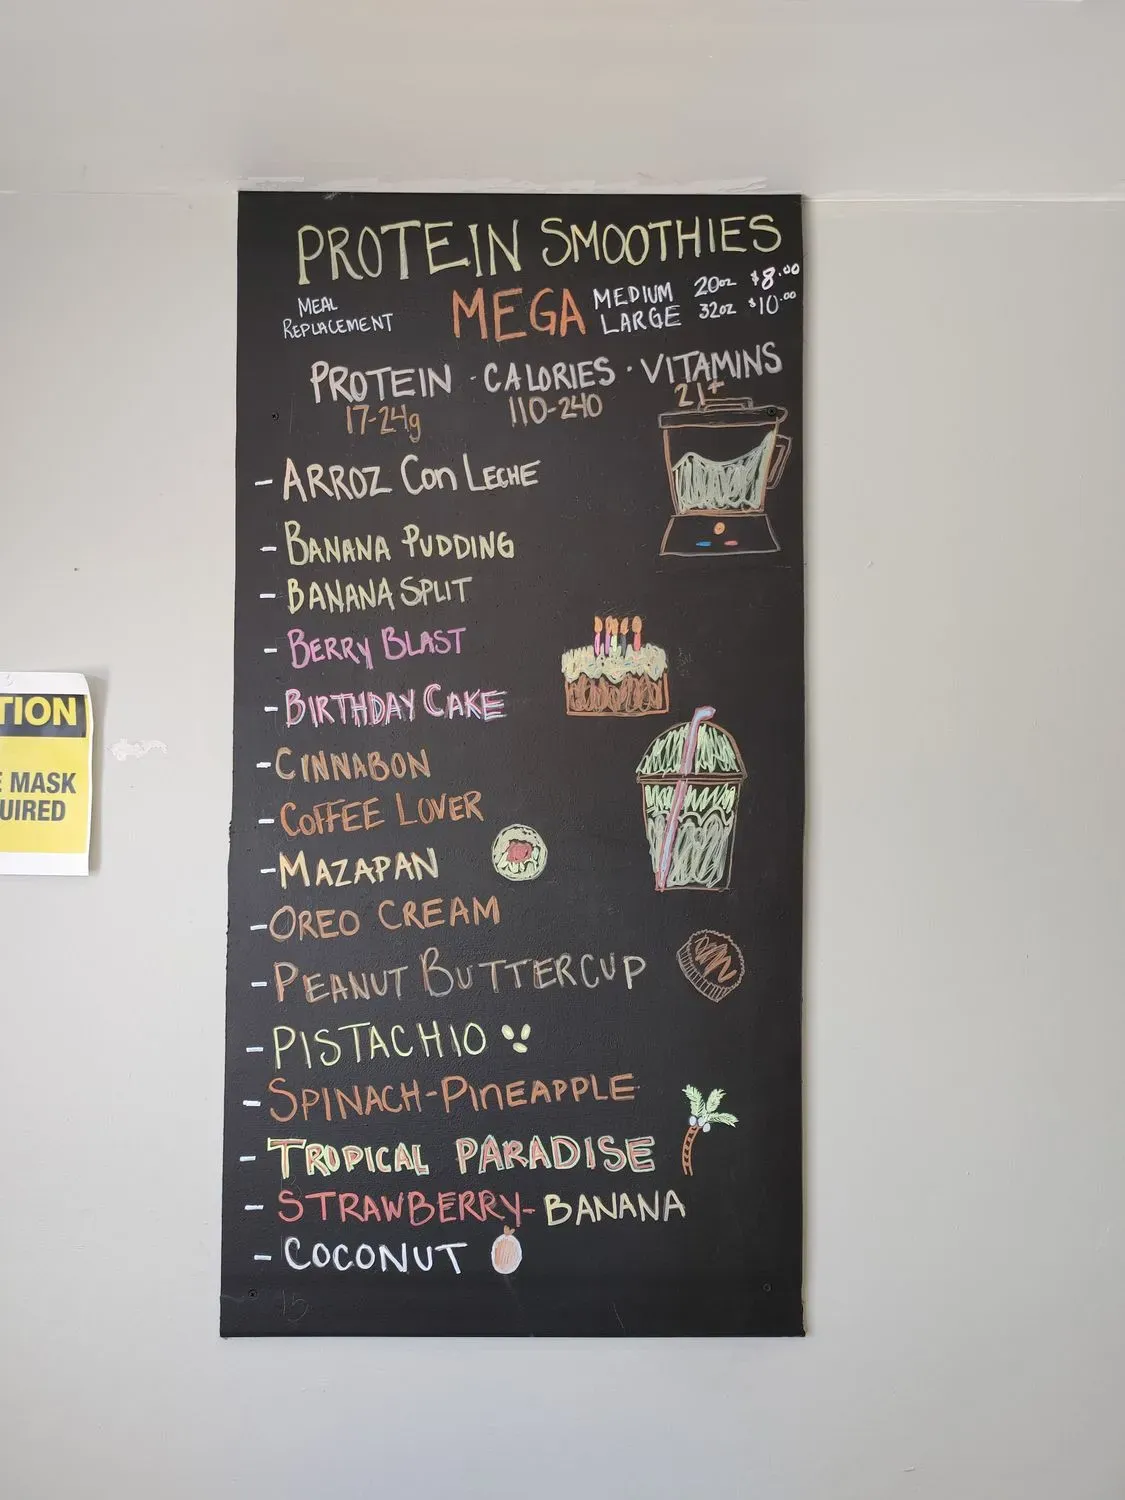 PROTEIN SMOOTHIES
MEAL REPLACEMENT
MEGA
MEDIUM 20oz $8.00
LARGE 32oz $10.00
PROTEIN · CALORIES · VITAMINS
17-24g 110-240 21+
- ARROZ Con LECHE
- BANANA PUDDING
- BANANA SPLIT
- BERRY BLAST
- BIRTHDAY CAKE
- CINNABON
- COFFEE LOVER
- MAZAPAN
- OREO CREAM
- PEANUT BUTTERCUP
- PISTACHIO
- SPINACH-PINEAPPLE
- TROPICAL PARADISE
- STRAWBERRY-BANANA
- COCONUT
15
TION
E MASK
UIRED